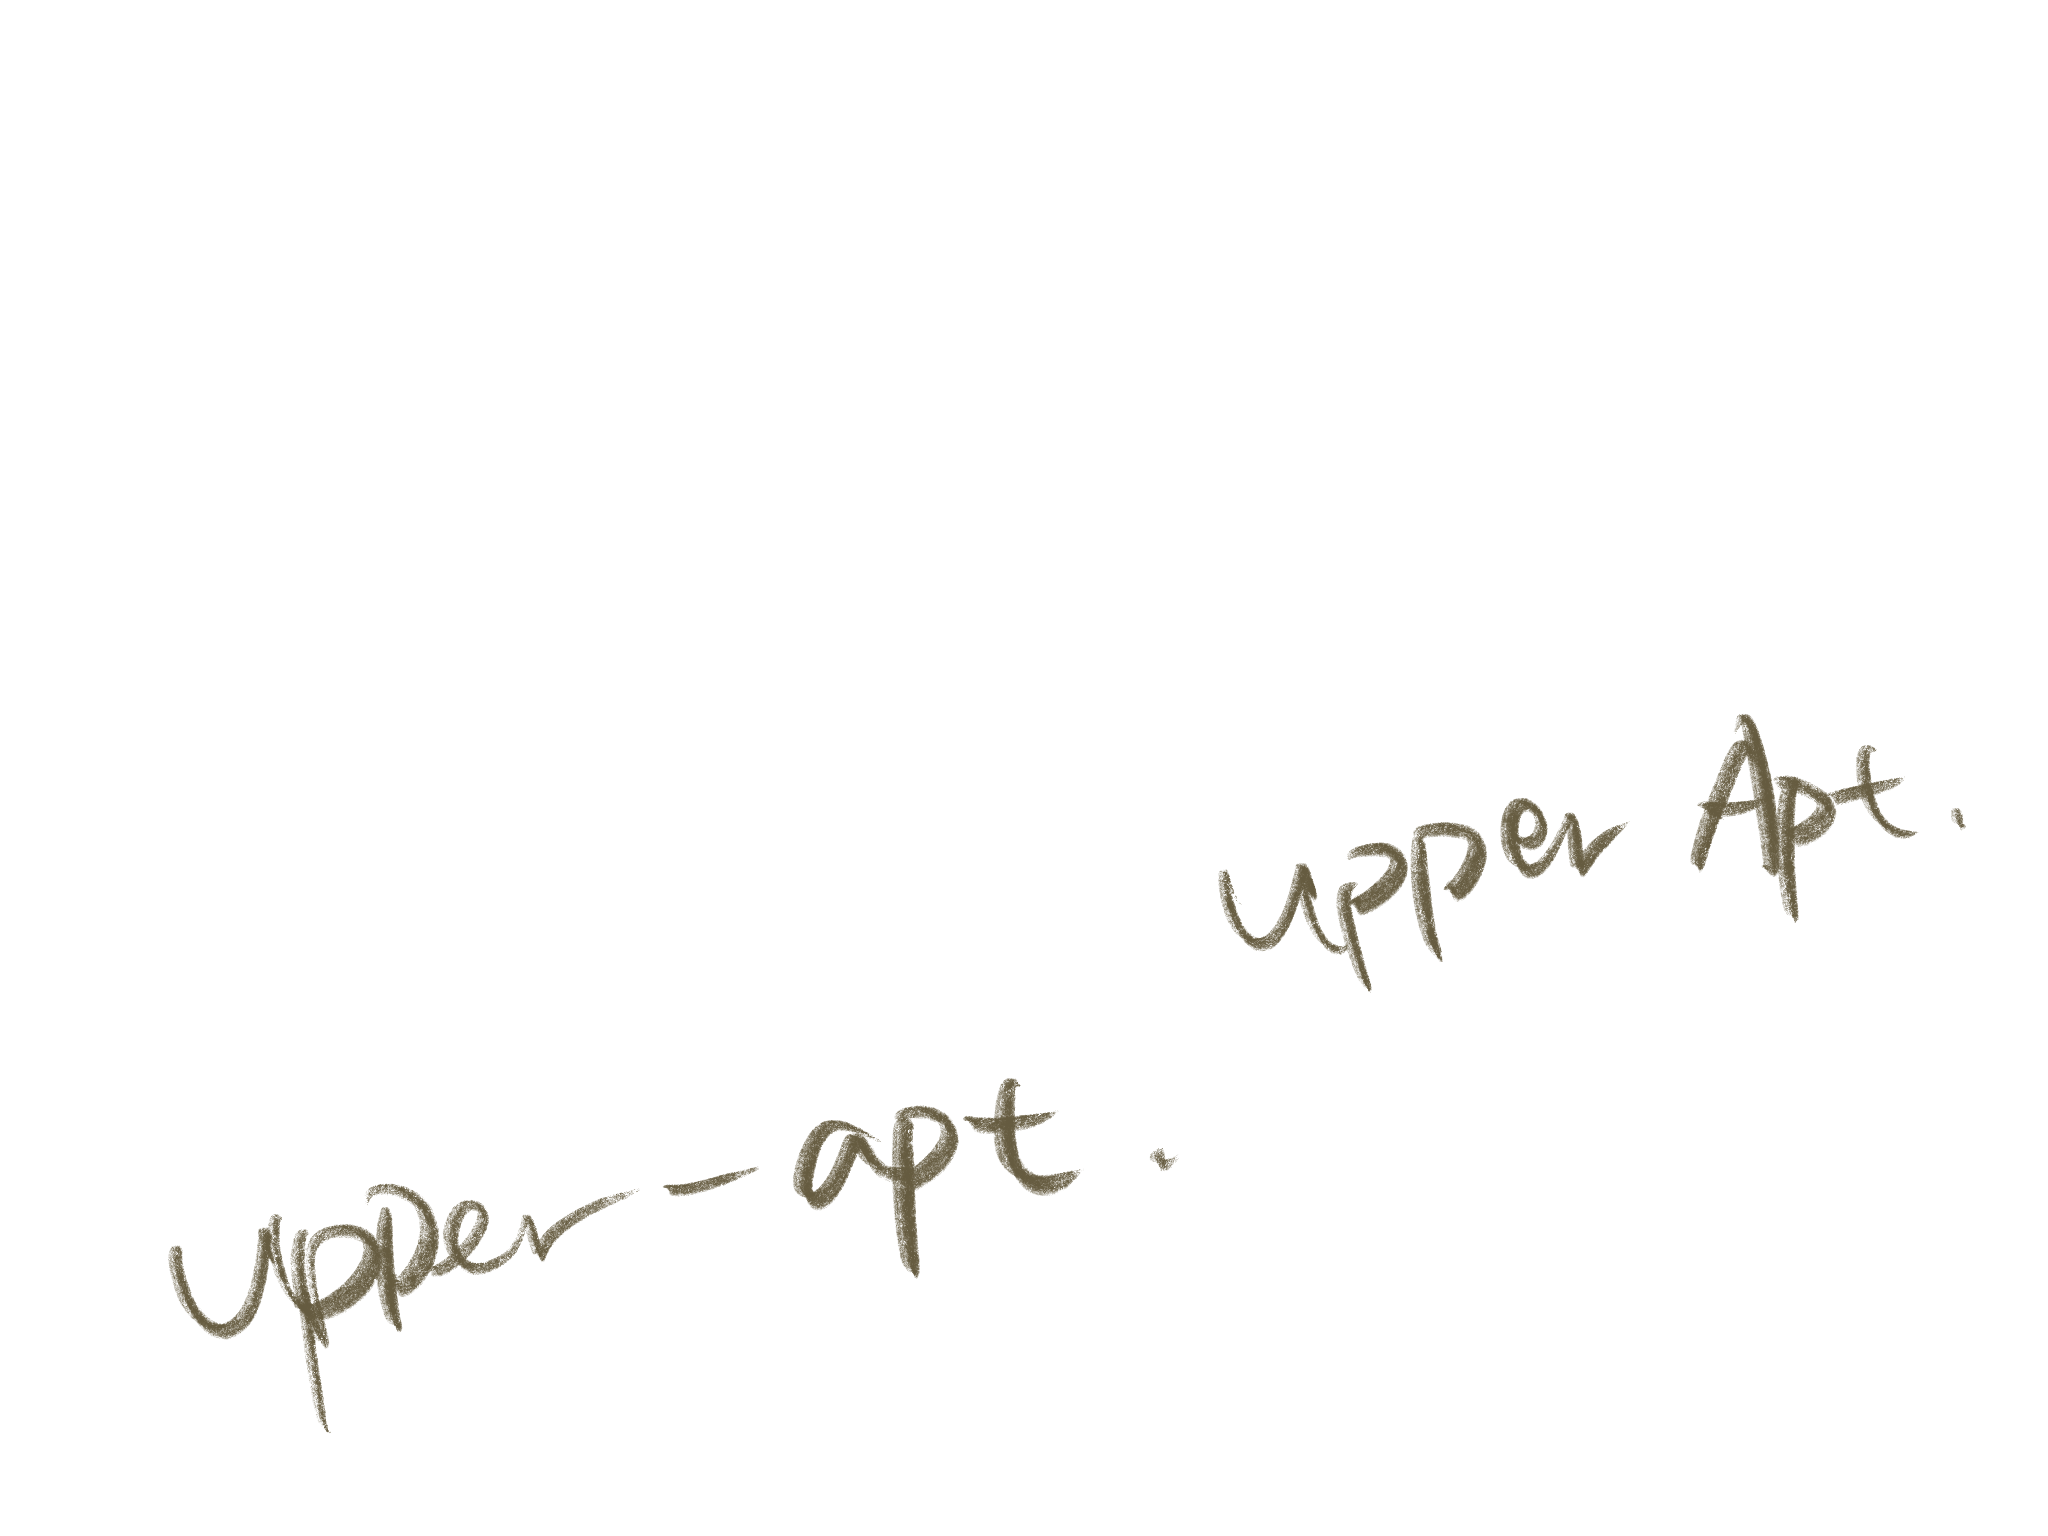 upper Apt.
upper-apt.